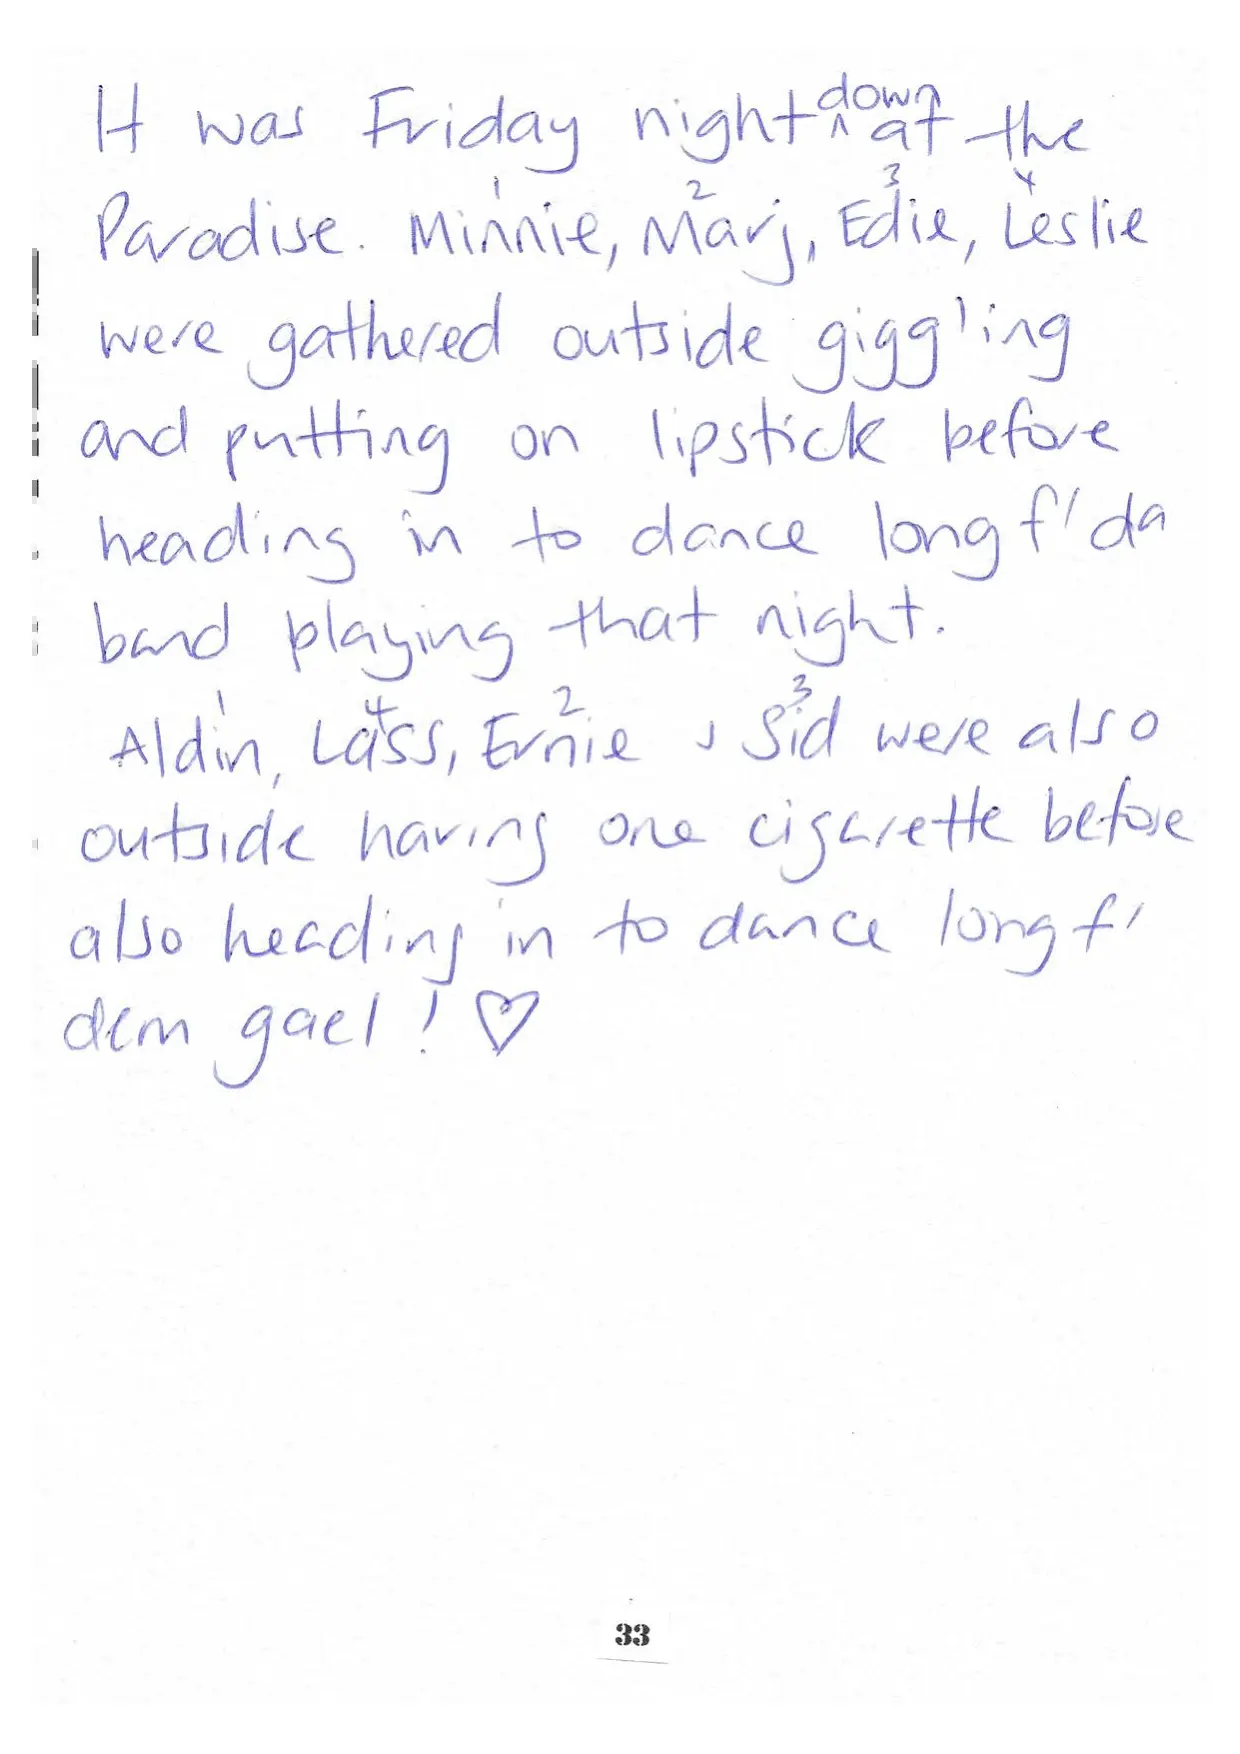 It was Friday night ^down at the
1 2 3 4
Paradise. Minnie, Marj, Edie, Leslie
were gathered outside gigg'ing
and putting on lipstick before
heading in to dance long f' da
band playing that night.
1 4 2 3
Aldin, Lass, Ernie & Sid were also
outside having one cigarette before
also heading in to dance long f'
dem gael! ♡
33